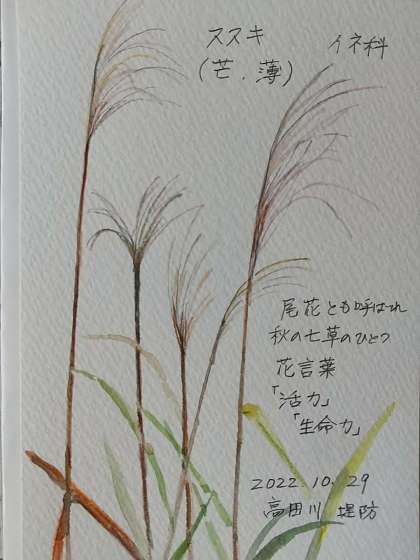 ススキ イネ科
(芒．薄)
尾花とも呼ばれ
秋の七草のひとつ
花言葉
「活力」
「生命力」
2022.10.29
高田川 堤防